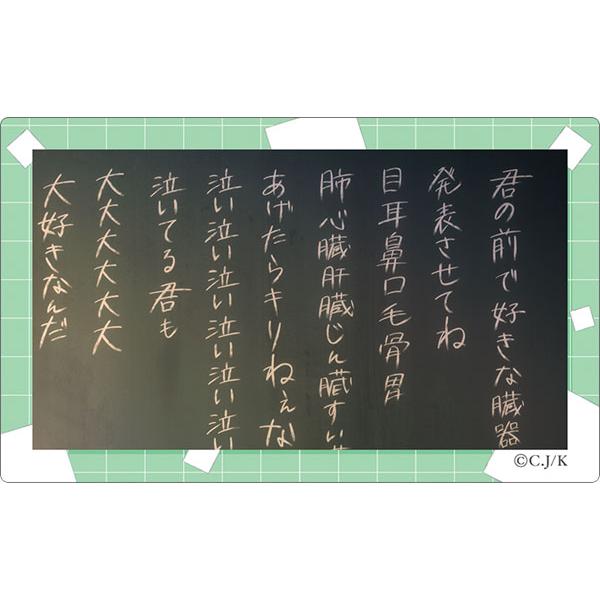 君の前で好きな臓器
発表させてね
目耳鼻口毛骨胃
肺心臓肝臓じん臓すい
あげたらキリねぇな
泣い泣い泣い泣い泣い
泣いてる君も
大大大大大大
大好きなんだ
©C.J/K